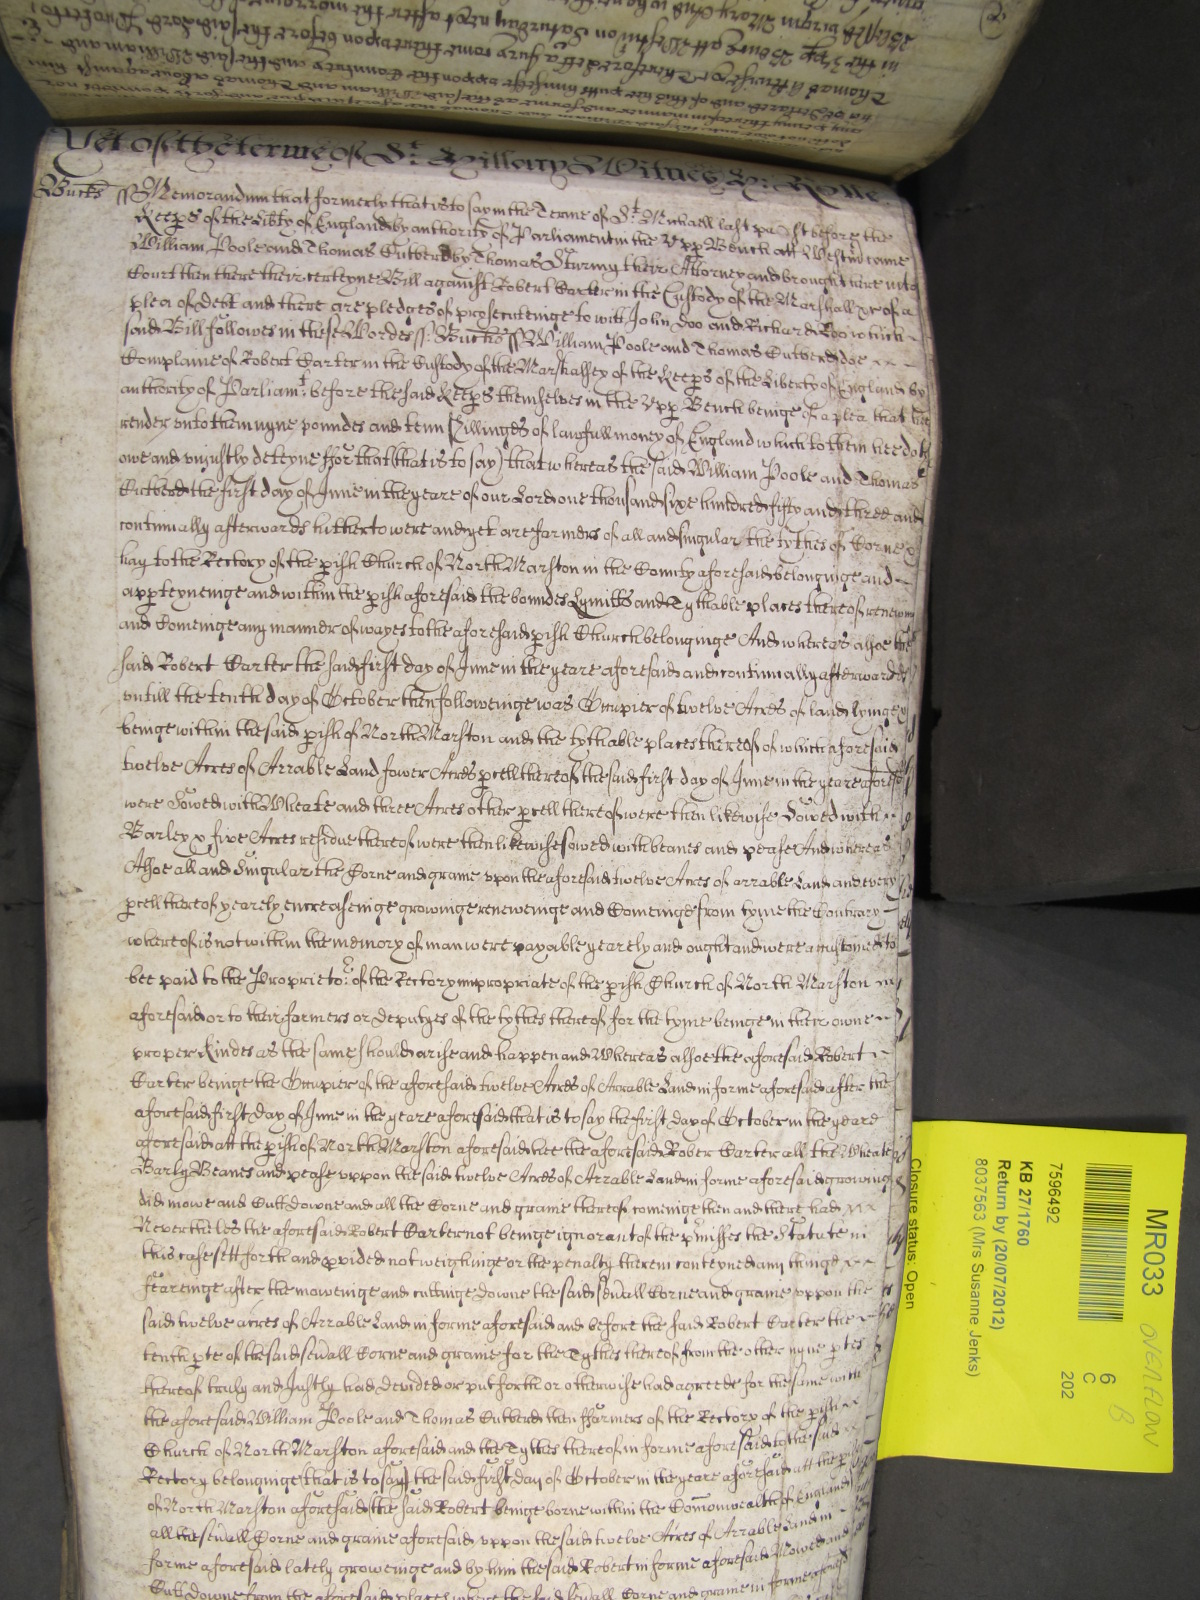 Yet of the terme of St. Hillary Witnes H: Rolle.
Bucks ss Memorandum that formerly that is to say in the Terme of St Michaell last past before the
Keeps of the Libty of England by authority of Parliament in the Vpp Bench att Westm came
William Poole and Thomas Cutberd by Thomas Sturing their Attorney and brought here into
Court then there their certeyne Bill against Robert Carter in the Custody of the Marshall &c of a
plea of debt and there are pledges of prosecuteinge to witt John Doo and Richard Roo which
said Bill followes in these Wordes ss: Bucks ss William Poole and Thomas Cutberd doe
Complaine of Robert Carter in the Custody of the Marshallsey of the Keeps of the Liberty of England by
authority of Parliamt: before the said Keeps themselves in the Vpp Bench beinge of a plea that hee
render vnto them nyne poundes and tenn shillinges of lawfull money of England which to them hee doth
owe and vniustly deteyne ffor that (that is to say) that whereas the said William Poole and Thomas
Cutberd the first day of June in the yeare of our Lord one thousand sixe hundred fifty and three and
continually afterwards hitherto were and yet are farmers of all and singular the tythes of Corne &
hay to the Rectory of the pish Church of North Marston in the County aforesaid belonginge and
apperteyneinge and within the pish aforesaid the boundes Lymitts and Tythable places thereof renewing
and Comeinge any manner of wayes to the aforesaid pish Church belonginge And whereas alsoe the
said Robert Carter the said first day of June in the yeare aforesaid and continually afterwardes
vntill the tenth day of October then followeinge was Occupier of twelve Acres of land lyinge &
beinge within the said pish of North Marston and the tythable places thereof of which aforesaid
twelve Acres of Arrable Land fower Acres pcell thereof the said first day of June in the yeare aforesd
were Sowed with Wheate and three Acres other pcell thereof were then likewise Sowed with
Barley & five Acres residue thereof were then likewise sowed with beanes and pease And whereas
Alsoe all and Singular the Corne and graine vpon the aforesaid twelve Acres of arrable Land and every
pcell thereof yearely encreaseinge growinge reneweinge and Comeinge from tyme the Contrary
whereof is not within the memory of man were payable yearely and ought and were accustomed to
bee paid to the Proprietor: of the Rectory impropriate of the pish Church of North Marston
aforesaid or to their farmers or deputyes of the tythes thereof for the tyme beinge in their owne
proper kindes as the same should arise and happen and Whereas alsoe the aforesaid Robert
Carter beinge the Occupier of the aforesaid twelve Acres of Arrable Land in forme aforesaid after the
aforesaid first day of June in the yeare aforesaid that is to say the first day of October in the yeare
aforesaid att the pish of North Marston aforesaid hee the aforesaid Rober Carter all the Wheate
Barly Beanes and pease vppon the said twelve Acres of Arrable Land in forme aforesaid growing
did mowe and Cutt downe and all the Corne and graine thereof cominge then and there had
Neverthelesse the aforesaid Robert Carter not beinge ignorant of the pmisses the Statute in
this case sett forth and pvided not weighinge or the penalty therein conteyned any thinge
feareinge after the moweinge and cuttinge downe the said sevall Corne and graine vppon the
said twelve acres of Arrable Land in forme aforesaid and before the said Robert Carter the
tenth pte of the said sevall Corne and graine for the Tythes thereof from the other nyne ptes
thereof truly and Justly had devided or putt forth or otherwise had agreede for the same with
the aforesaid William Poole and Thomas Cutberd then ffarmers of the Rectory of the pish
Church of North Marston aforesaid and the Tythes thereof in forme aforesaid to the said
Rectory belonginge that is to say the said first day of October in the yeare aforesaid att the pish
of North Marston aforesaid (the said Robert beinge borne within the Comonwealth of England
all the sevall Corne and graine aforesaid vppon the said twelve Acres of Arrable Land in
forme aforesaid lately groweinge and by him the said Robert in forme aforesaid Mowed and
Cutt downe from the aforesaid place where the said sevall Corne and graine in forme aforesd
MR033
OVERFLOW
B
6
C
202
7596492
KB 27/1760
Return by (20/07/2012)
8037563 (Mrs Susanne Jenks)
Closure status: Open